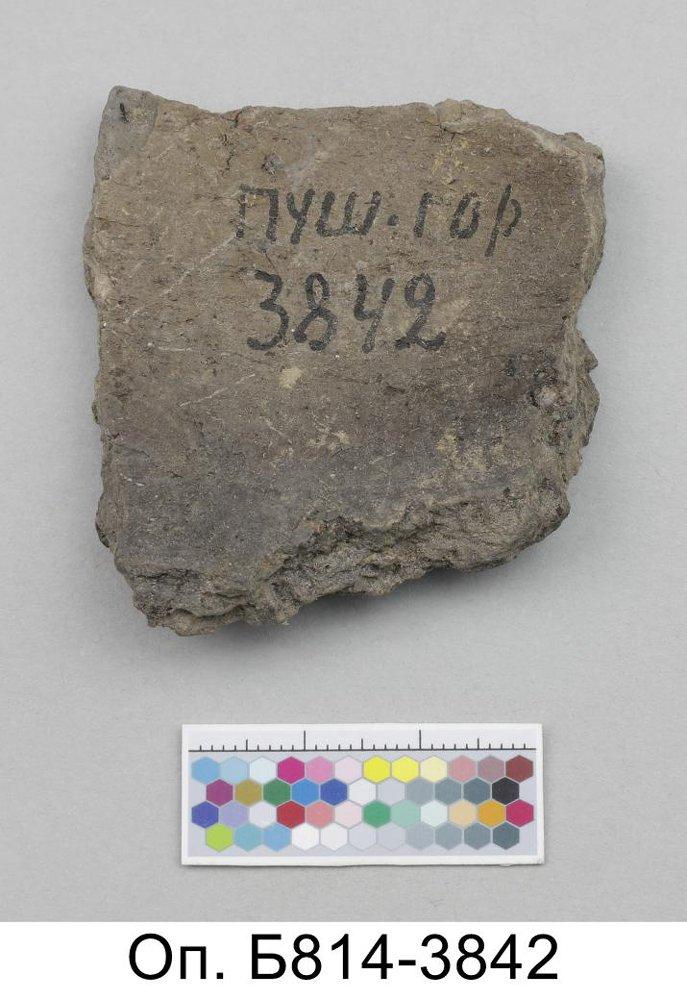 ПУШ.ГОР
3842
Оп. Б814-3842